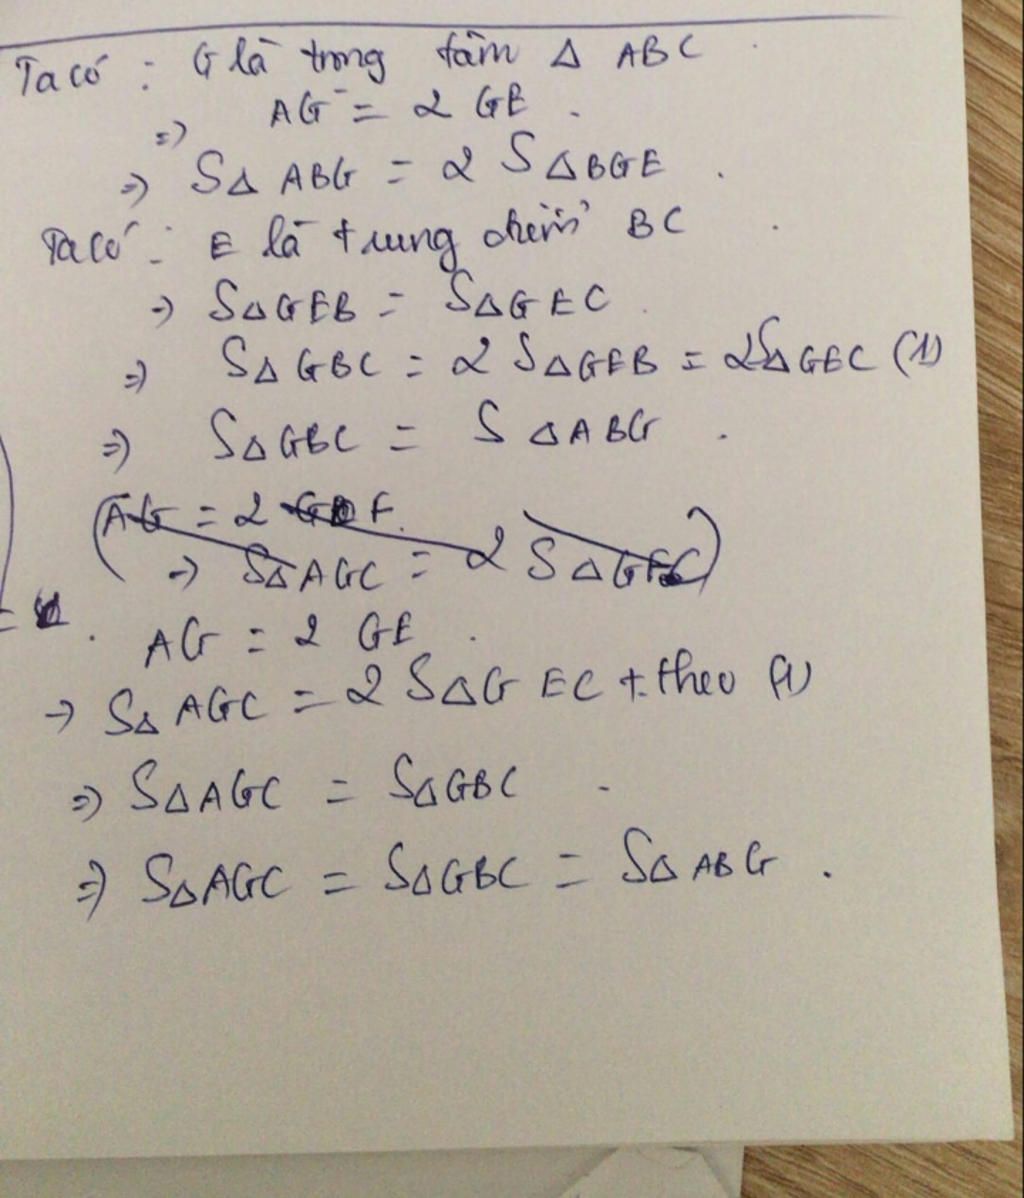 Ta có : G là trọng tâm Δ ABC
=> AG = 2 GE .
=> SΔ ABG = 2 SΔBGE .
Ta có : E là trung điểm BC .
=> SΔGEB = SΔGEC .
=> SΔGBC = 2 SΔGEB = 2SΔGEC (1)
=> SΔGBC = SΔABG .
(AG = 2 F.
-> SΔAGC = 2 SΔGEC)
AG = 2 GE .
-> SΔ AGC = 2 SΔG EC + theo (1)
=> SΔAGC = SΔGBC .
=> SΔAGC = SΔGBC = SΔ ABG .